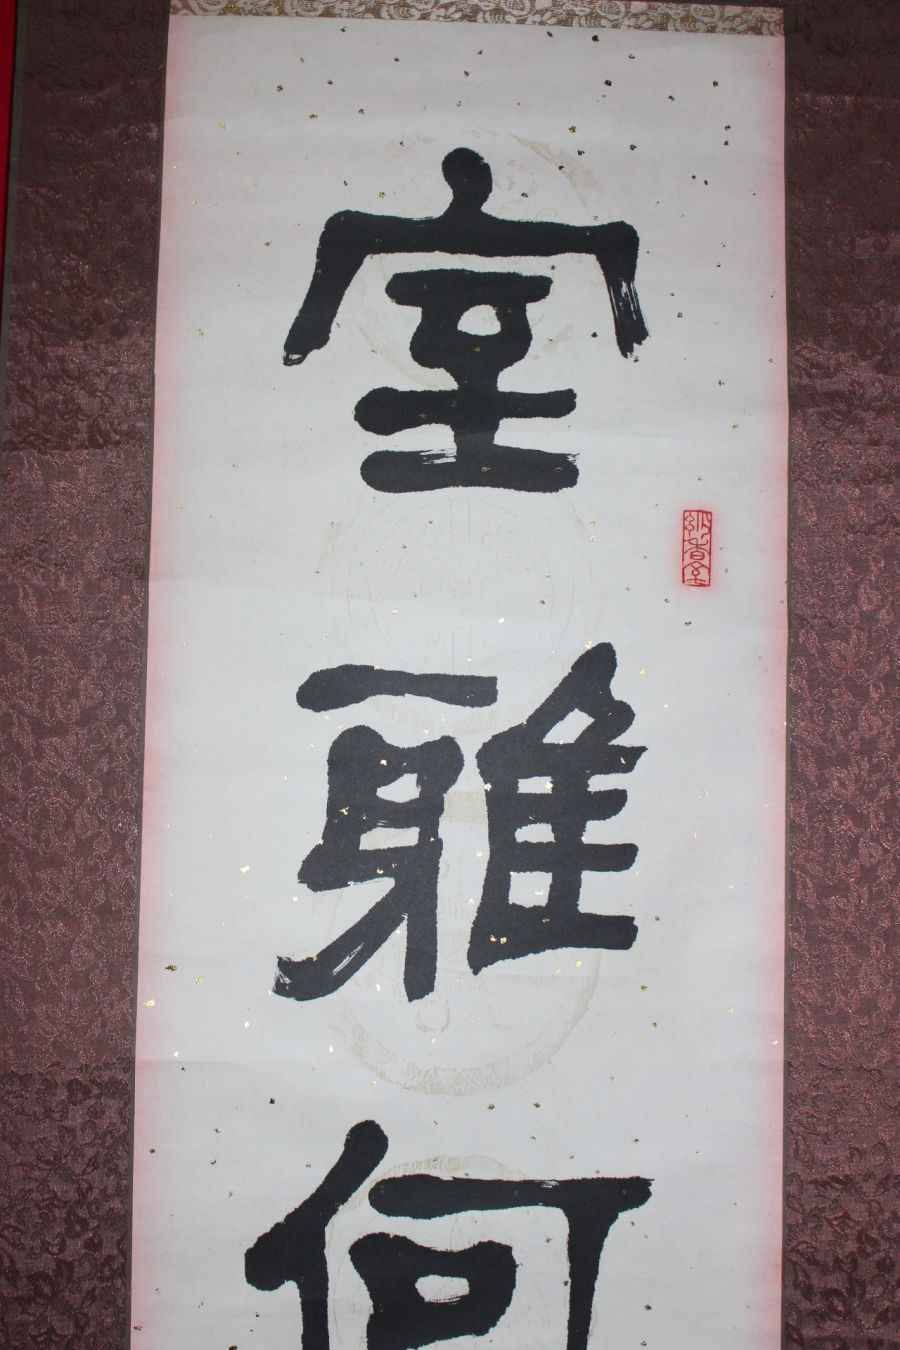 室雅何